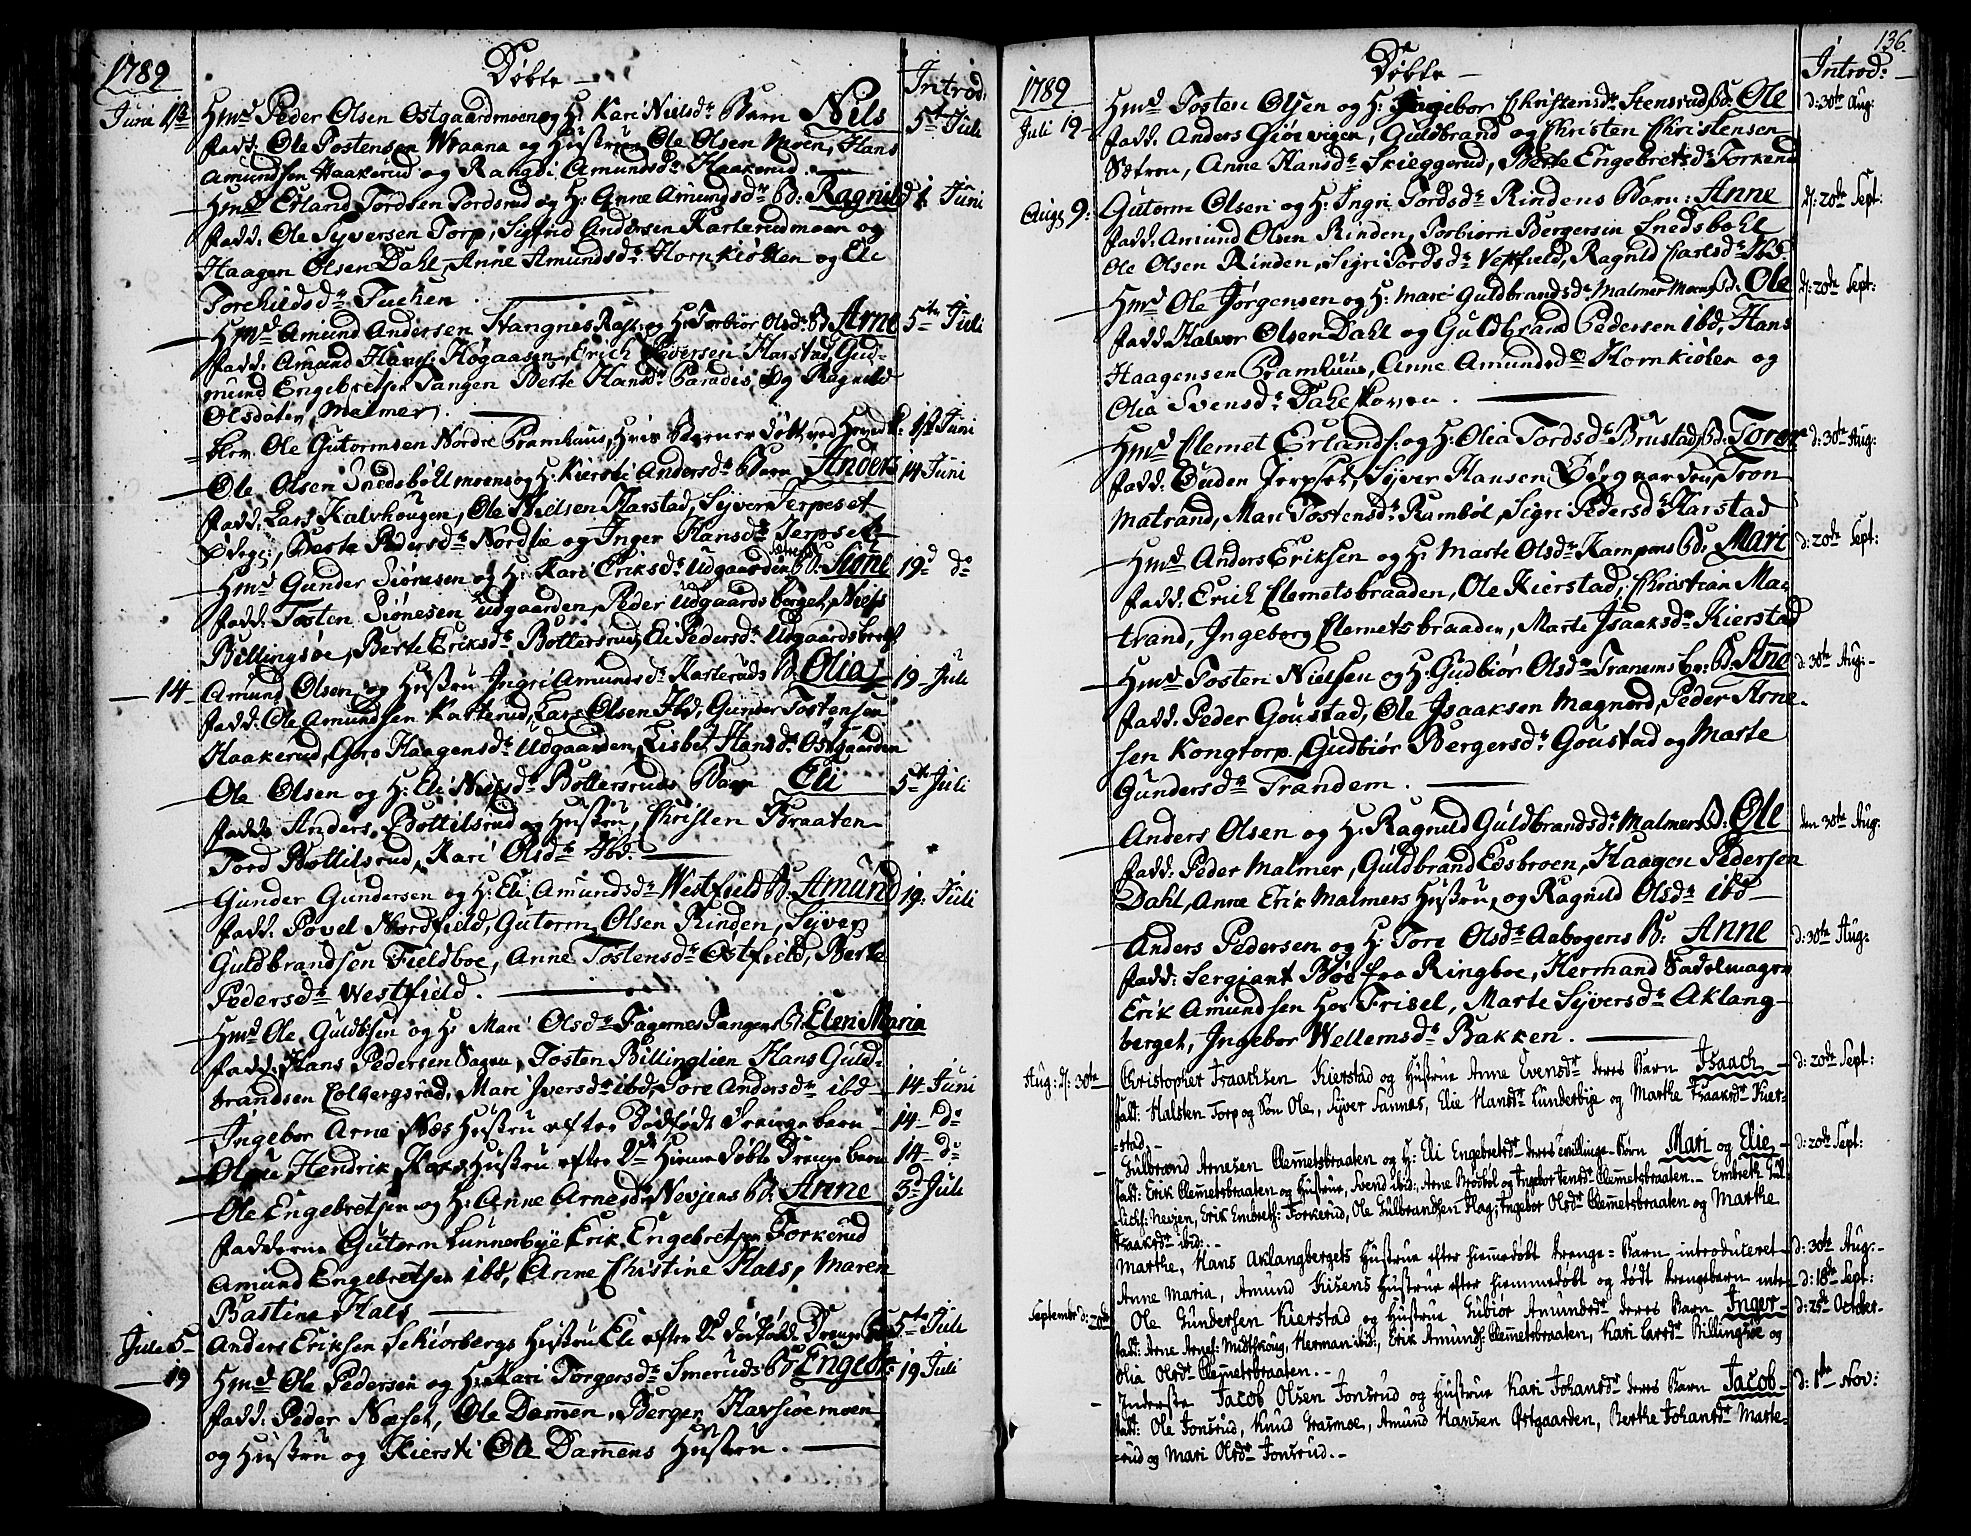 1789 Døbte Introd:
Juni 1ste Hmd Peder Olsen Ostgaardmoen og H: Kari Nielsdr Barn Nils 5te Juli
fadd: Ole Tostensen Wraana og Hustrue Ole Olsen Moen, Hans
Amundsen Haakerud og Rangdi Amundsdr Haakerud.
Hmd Erland Tordsen Tordsrud og H: Anne Amundsdr B: Ragnild 1 Juni
fadd: Ole Syversen Torp, Sigfrid Andersen Karterudmoen og
Haagen Olsen Dahl, Anne Amundsdr Hornkiølen og Eli
Torchildsdr Tuchen
Hmd Amund Andersen Stangnes og H: Torbiør Olsdr B: Arne 5te Juli
fadd: Amund Hans: Høgaasen, Erich Syversen Harstad, Gud-
mund Engebretsen Tangen Berte Hansdr Paradis, Og Ragnild
Olsdater Malmer.
Ole Gutormsen Nordre Pramhuus, 1ste Juni
Ole Olsen Snedsbølmoens og H: Kiersti Andersdr Barn Anders 14 Juni
fadd: Lars Kalvhougen, Ole Nielsen Harstad, Syver Jerpeset
Ødeg:, Berte Pedersdr Nordlie og Inger Hansdr Jerpset
Hmd Gunder Siønesen og H: Kari Eriksdr Udgaarden B: Siøne 19d do
fadd: Tosten Siønesen Udgaarden, Peder Udgaardsberget, Niels
Billingsøe, Berte Eriksdr Bottersrud, Eli Pedersdr Udgaardsberget
14 Amund Olsen og Hustru Ingri Amundsdr Karteruds B: Olia 19 Juli
fadd: Ole Amundsen Karterud, Lars Olsen Ibd, Gunder Tostensen
Haakerud, Goro Haagensdr Udgaarden Lisbet Hansdr Ostgaarden
Ole Olsen og H: Eli Nielsdr Bottersruds Barn Eli 5te Juli
fadd: Anders Bottilsrud og Hustru, Christen Braaten
Tord Bottilsrud, Kari Olsdr Ibd.
Gunder Gundersen og H: Eli Amundsdr Westfield B: Amund 19. Juli
fadd: Povel Nordfield, Gutorm Olsen Rinden, Syver
Guldbrandsen Fieldboe, Anne Tostensdr Ostfield, Berte
Pedersdr Westfield.
Hmd Ole Guldbsen og H: Mari Olsdr Fagernes Tangens B: Eleni Maria
fadd: Hans Pedersen Sagen, Tosten Billinglien Hans Guld-
brandsen Colbergsrød, Mari Iversdr ibd, Tore Andersdr ibd 14 Juni
Ingebor Arne Næs Hustru efter Dødfødt Drenge barn 14 do
Olsen, Hendrik Hustru efter Hiemmedøbte Drenge barn 14 do
Ole Engebretsen og H: Anne Arnesdr Nevjens B: Anne 3d Juli
fadderne Gutorm Lunnerbye Erik Engebretsen Torkerud
Amund Engebretsen ibd, Anne Christine Hals, Maren
Bastine Hals
Juli 5 Anders Eriksen Schiørbergs Hustru Eli efter Dødfødde Drenge 5te Juli
19 Hmd Ole Pedersen og H: Kari Torgersdr Smeruds B: Engebr: 19 Juli
fadd: Peder Næset, Ole Dammen, Berger Havsiøemoen
og Hustru og Kiersti Ole Dammens Hustru.
136.
1789 Døbte Introd:
Juli 19 Hmd Tosten Olsen og H: Ingebor Christensdr Stensrud B: Ole d: 30te Aug:
fadd. Anders Giøevigen, Guldbrand og Christen Christensen
Sætren, Anne Hansdr Skieggerud, Berte Engebretsdr Torkerud
Augs 9: Gutorm Olsen og H: Ingri Tordsdr Rindens Barn: Anne d: 20de Sept:
fadd: Amund Olsen Rinden, Torbiørn Bergersen Snedsbøhl
Ole Olsen Rinden, Sigri Tordsdr Vestfield, Ragnild Carlsdr Ibd.
Hmd Ole Jørgensen og H: Mari Guldbrandsdr Malmer Moens B: Ole d: 20de Sept:
fadd Halvor Olsen Dahl og Guldbrand Pedersen ibd, Hans
Haagensen Pramhuus, Anne Amundsdr Hornkiølen og
Olia Svensdr Dahlskoven.
Hmd Clemet Erlands: og H: Olia Tordsdr Brustad B: Torer d: 30te Aug:
fadd. Ouden Jerpset, Syver Hansen Børgnarden, Tron
Matrand, Mari Tostensdr Rambøl, Sigri Pedersdr Harstad
Hmd Anders Eriksen og H: Marte Olsdr Kampens B: Mari d: 20de Sept:
fadd: Erich Clemetsbraaden, Ole Kierstad, Christian Ma-
trand, Ingeborg Clemetsbraaden, Marte Isaaksdr Kierstad
Hmd Tosten Nielsen og H: Gudbiør Olsdr Tranems B: Ane d: 30te Aug:
fadd: Peder Goustad, Ole Isaaksen Magnord, Peder Arne-
sen Kongtorp, Gudbiør Bergersdr Goustad og Marte
Gundersdr Trandem.
Anders Olsen og H: Ragnild Guldbrandsdr Malmers B: Ole den 30te Aug:
fadd: Peder Malmer, Guldbrand Eosbroen, Haagen Pedersen
Dahl, Anne Erik Malmers Hustru, og Ragnild Olsdr ibd
Anders Pedersen og H: Tore Olsdr Aabogens B: Anne d: 30te Aug:
fadd: Sergiant Bøe fra Ringboe, Hermand Sadelmagr
Erik Amundsen Hos Frisel, Marte Syversdr Aklang-
berget, Ingebor Wellemsdr Bakken.
Aug: d: 30te Christopher Isaachsen Kierstad og Hustrue Anne Evensdr deres Barn Isaach d: 20de Sept:
fadd: Halsten Torp og Søn Ole, Syver Sannæs, Elie Hansdr Lunderbye og Marthe Isaaksdr Kier-
=stad.
Gulbrand Arnesen Clemmetsbraaten og H: Eli Engebretdr deres tvillinge-Børn Mari og Elie d: 20de Sept:
fadd: Erik Clemmetsbraaten og Hustrue, Svend ibid:, Arne Brøsbøl og Ingebor Jensdr Clemmetsbraaten. Embreth Gul-
lichs: Nevjen, Erik Embreths: Torkerud, Ole Gulbrandsen Hag; Ingebor Olsdr Clemmetsbraaten og Marthe
Isaaksdr ibid:.
Marthe, Hans Aklangbergets Hustrue efter hiemmedøbt drenge=Barn introduceret d: 30te Aug:
Anne Maria, Amund Kisens Hustrue efter hiemmedøbt og dødt drengebarn intr: d: 18de Sept:
September d: 20de Ole Gundersen Kierstad og Hustrue Gubiør Amundsdr deres Barn Inger d: 25de October
fadd: Arne Arnes: Midtskoug, Herman ibid:, Erik Amunds: Clemmetsbraaten, Kari Larsdr Billingsøe og
Olia Olsdr Clemmetsbraaten.
Inderste Jacob Olsen Jonsrud og Hustrue Kari Johansdr deres Barn Jacob d: 1ste Nov:
fadd: Ole Jonsrud, Knud Grasmoe, Amund Hansen Østgaarden, Berthe Johansdr Marte-
=rud og Mari Olsdr Jonsrud.